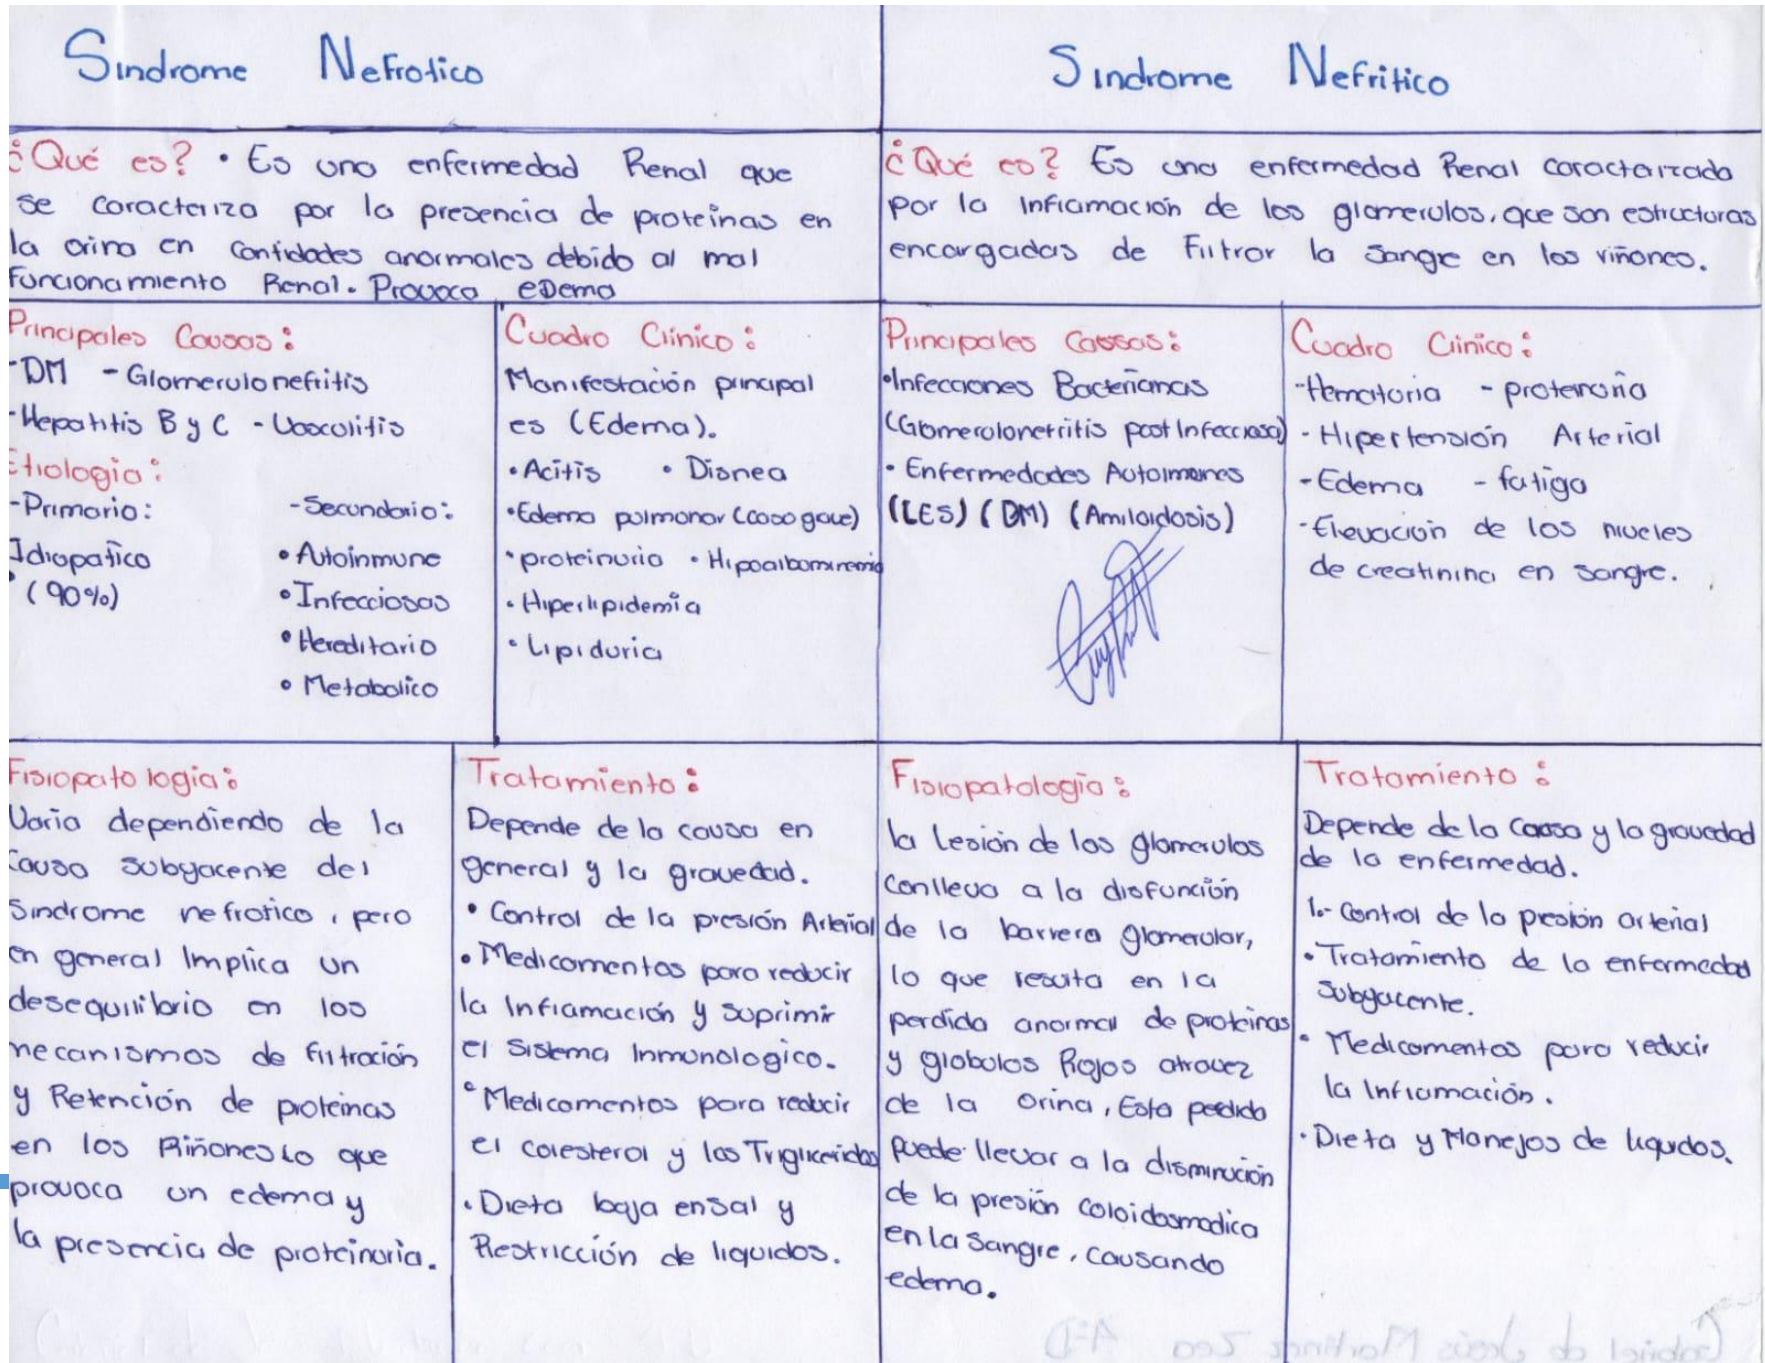 Sindrome Nefrotico
¿Qué es? • Es una enfermedad Renal que
se caracteriza por la presencia de proteínas en
la orina en cantidades anormales debido al mal
Funcionamiento Renal. Provoca eDema
Principales Causas:
-DM - Glomerulonefritis
-Hepatitis B y C - Vasculitis
Etiologia:
-Primario: -Secundario:
Idiopatico • Autoinmune
• (90%) • Infecciosas
• Hereditario
• Metabolico
Cuadro Clinico:
Manifestación principal
es (Edema).
• Acitis • Disnea
• Edema pulmonar (caso grave)
• proteinuria • Hipoalbominemia
• Hiperlipidemia
• Lipiduria
Fisiopatologia:
Varia dependiendo de la
causa subyacente del
sindrome nefrotico, pero
en general Implica un
desequilibrio en los
mecanismos de filtración
y Retención de proteinas
en los Riñones Lo que
provoca un edema y
la presencia de proteinuria.
Tratamiento:
Depende de la causa en
general y la gravedad.
• Control de la presión Arterial
• Medicamentos para reducir
la Inflamación y suprimir
el Sistema Inmunologico.
• Medicamentos para reducir
el colesterol y los Trigliceridos
• Dieta baja en Sal y
Restricción de liquidos.
Sindrome Nefritico
¿Qué es? Es una enfermedad Renal caracterizada
por la Inflamación de los glomerulos, que son estructuras
encargadas de Filtrar la sangre en los riñones.
Principales Causas:
•Infecciones Bacterianas
(Glomerulonefritis post Infecciosa)
• Enfermedades Autoinmunes
(LES) (DM) (Amiloidosis)
Cuadro Clinico:
-Hematoria - proteinuria
- Hipertensión Arterial
-Edema - fatiga
-Elevación de los niveles
de creatinina en sangre.
Fisiopatología:
la Lesión de los glomerulos
conlleva a la disfunción
de la barrera glomerular,
lo que resulta en la
perdida anormal de proteinas
y globulos Rojos atravez
de la orina, Esta perdida
puede llevar a la disminución
de la presión coloidosmotica
en la sangre, causando
edema.
Tratamiento:
Depende de la causa y la gravedad
de la enfermedad.
1.- Control de la presión arterial
• Tratamiento de la enfermedad
subyacente.
• Medicamentos para reducir
la Inflamación.
• Dieta y Manejos de liquidos.